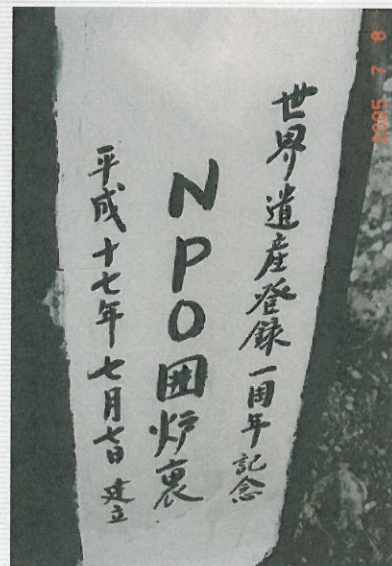 世界遺産登録一周年記念
NPO囲炉裏
平成十七年七月七日 建立
2005 7 8